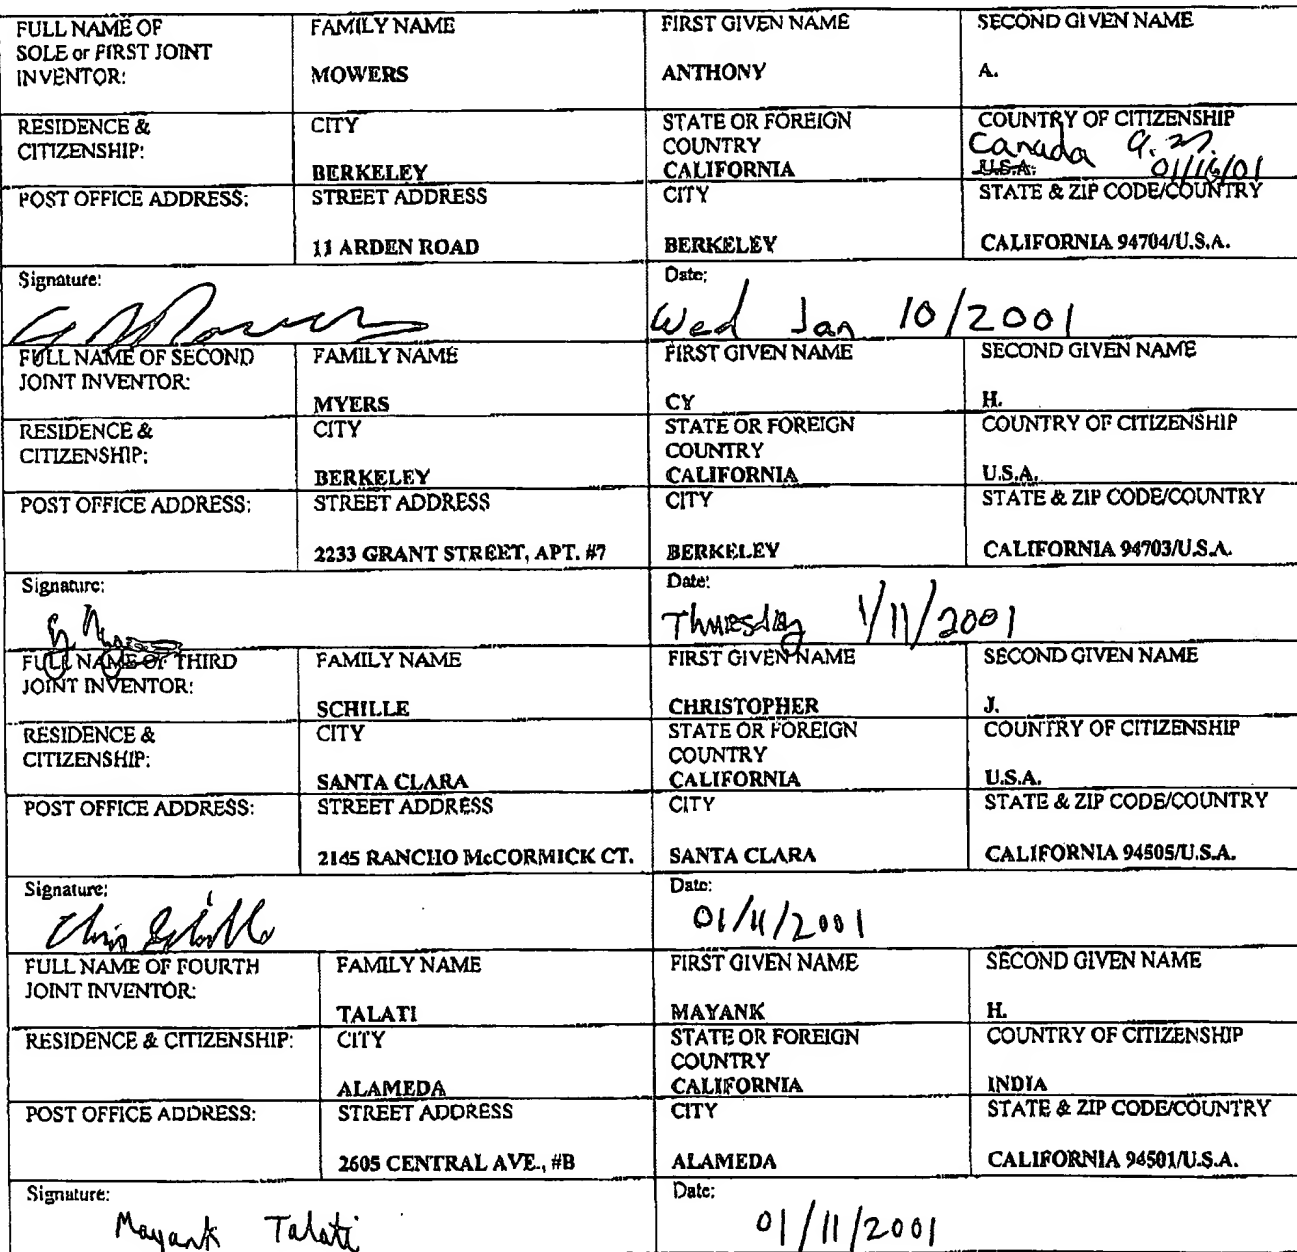 FULL NAME OF SOLE or FIRST JOINT INVENTOR:
FAMILY NAME
MOWERS
FIRST GIVEN NAME
ANTHONY
SECOND GIVEN NAME
A.
RESIDENCE & CITIZENSHIP:
CITY
BERKELEY
STATE OR FOREIGN COUNTRY
CALIFORNIA
COUNTRY OF CITIZENSHIP
Canada A.M.
U.S.A. 01/16/01
POST OFFICE ADDRESS:
STREET ADDRESS
11 ARDEN ROAD
CITY
BERKELEY
STATE & ZIP CODE/COUNTRY
CALIFORNIA 94704/U.S.A.
Signature:
Date:
Wed Jan 10/2001
FULL NAME OF SECOND JOINT INVENTOR:
FAMILY NAME
MYERS
FIRST GIVEN NAME
CY
SECOND GIVEN NAME
H.
RESIDENCE & CITIZENSHIP:
CITY
BERKELEY
STATE OR FOREIGN COUNTRY
CALIFORNIA
COUNTRY OF CITIZENSHIP
U.S.A.
POST OFFICE ADDRESS:
STREET ADDRESS
2233 GRANT STREET, APT. #7
CITY
BERKELEY
STATE & ZIP CODE/COUNTRY
CALIFORNIA 94703/U.S.A.
Signature:
Date:
Thuresday 1/11/2001
FULL NAME OF THIRD JOINT INVENTOR:
FAMILY NAME
SCHILLE
FIRST GIVEN NAME
CHRISTOPHER
SECOND GIVEN NAME
J.
RESIDENCE & CITIZENSHIP:
CITY
SANTA CLARA
STATE OR FOREIGN COUNTRY
CALIFORNIA
COUNTRY OF CITIZENSHIP
U.S.A.
POST OFFICE ADDRESS:
STREET ADDRESS
2145 RANCHO McCORMICK CT.
CITY
SANTA CLARA
STATE & ZIP CODE/COUNTRY
CALIFORNIA 94505/U.S.A.
Signature:
Chris Schille
Date:
01/11/2001
FULL NAME OF FOURTH JOINT INVENTOR:
FAMILY NAME
TALATI
FIRST GIVEN NAME
MAYANK
SECOND GIVEN NAME
H.
RESIDENCE & CITIZENSHIP:
CITY
ALAMEDA
STATE OR FOREIGN COUNTRY
CALIFORNIA
COUNTRY OF CITIZENSHIP
INDIA
POST OFFICE ADDRESS:
STREET ADDRESS
2605 CENTRAL AVE., #B
CITY
ALAMEDA
STATE & ZIP CODE/COUNTRY
CALIFORNIA 94501/U.S.A.
Signature:
Mayank Talati
Date:
01/11/2001